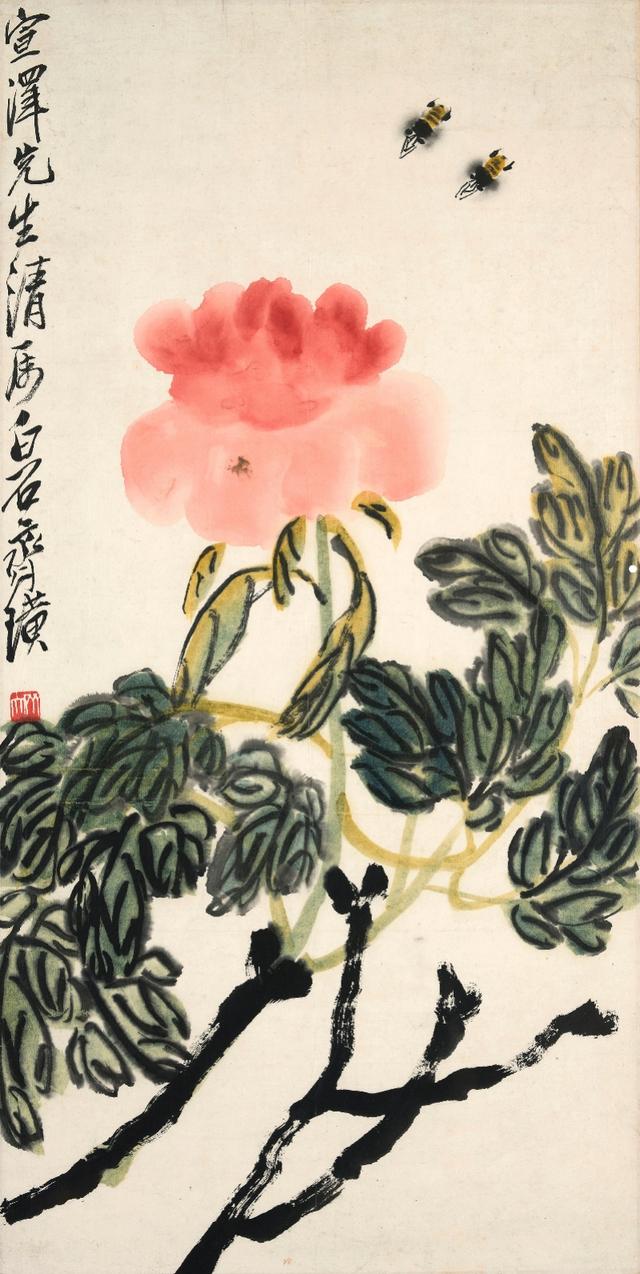 宣澤先生清屬白石齊璜